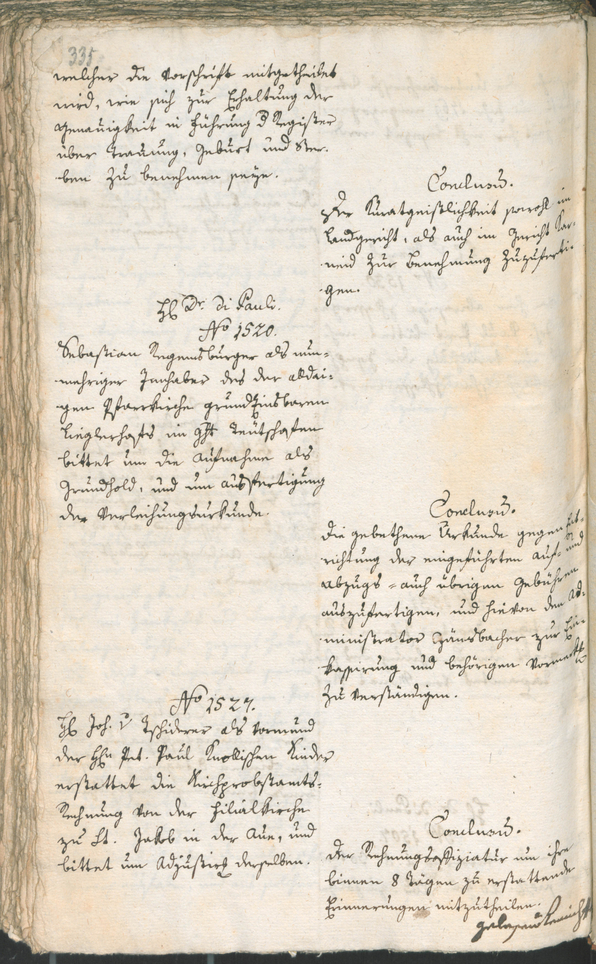 335
welcher die Vorschrift mitgetheilet
wird, wie sich zur Erhaltung der
Genauigkeit in Führung d Register
über Trauung, Geburt und Ster-
ben zu benehmen seye.
Conclusū.
Der Kuratgeistlichkeit sowohl im
Landgericht, als auch im Gericht Kar-
neid zur Benehmung zuzuferti-
gen.
Hℓ Dr. Di Pauli.
No 1520.
Sebastian Regensburger als nun-
mehriger Innhaber des der allhi-
gen Pfarrkirche grundzinsbaren
Zieglerhofs im Ght Teutschofen
bittet um die Aufnahme als
Grundhold, und um Ausfertigung
der Verleihungsurkunde.
Conclusū.
Die gebethene Urkunde gegen Ent-
richtung der eingeführten Auf- und
Abzugs- auch übrigen Gebühren
auszufertigen, und hievon den Ad-
ministrator zur Ein-
kassierung und behörigen Vormerk
zu verständigen.
No 1527.
Hℓ Joh. v Tschiderer als Vormund
der Hℓn Pet. Paul Kinder
erstattet die Kirchprobstamts-
Rechnung von der Filialkirche
zu St. Jakob in der Aue, und
bittet um Adjustirg derselben.
Conclusū.
Der Rechnungsoffiziatur um ihre
binnen 8 Tägen zu erstattende
Erinnerungen mitzutheilen.